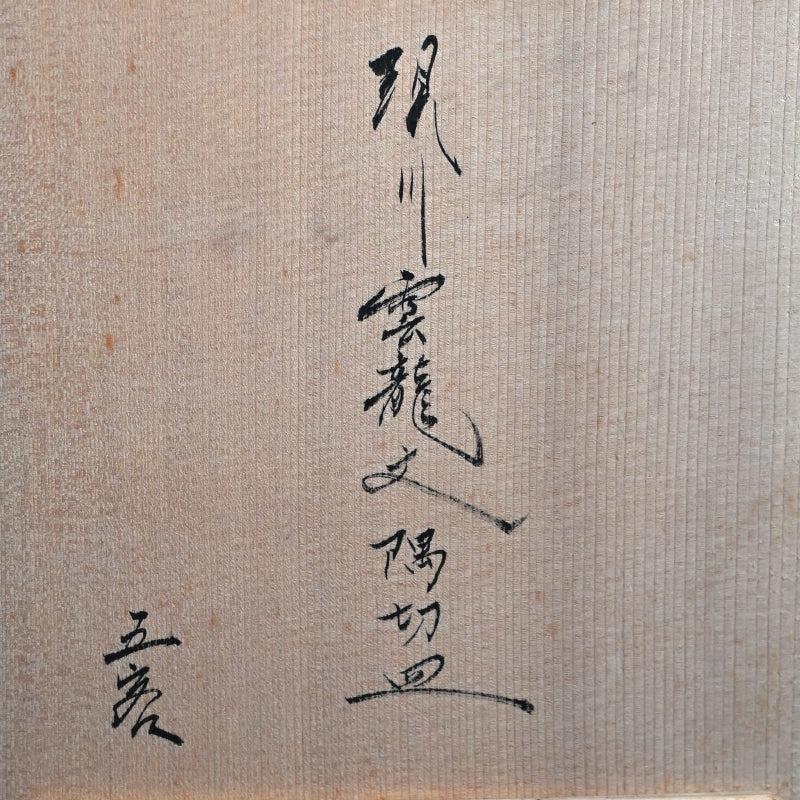 現川雲龍文隅切皿
五客